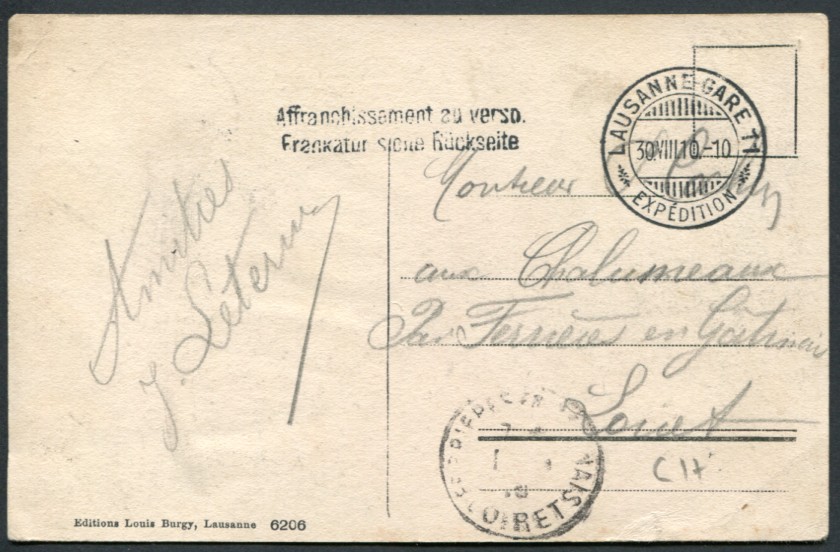 Affranchissement au verso.
Frankatur siehe Rückseite
LAUSANNE GARE 11
30.VIII.10.-10
EXPÉDITION
Monsieur
aux Chalumeaux
Par Ferrières en Gâtinais
Loiret
Amitiés
LOIRET
Editions Louis Burgy, Lausanne 6206